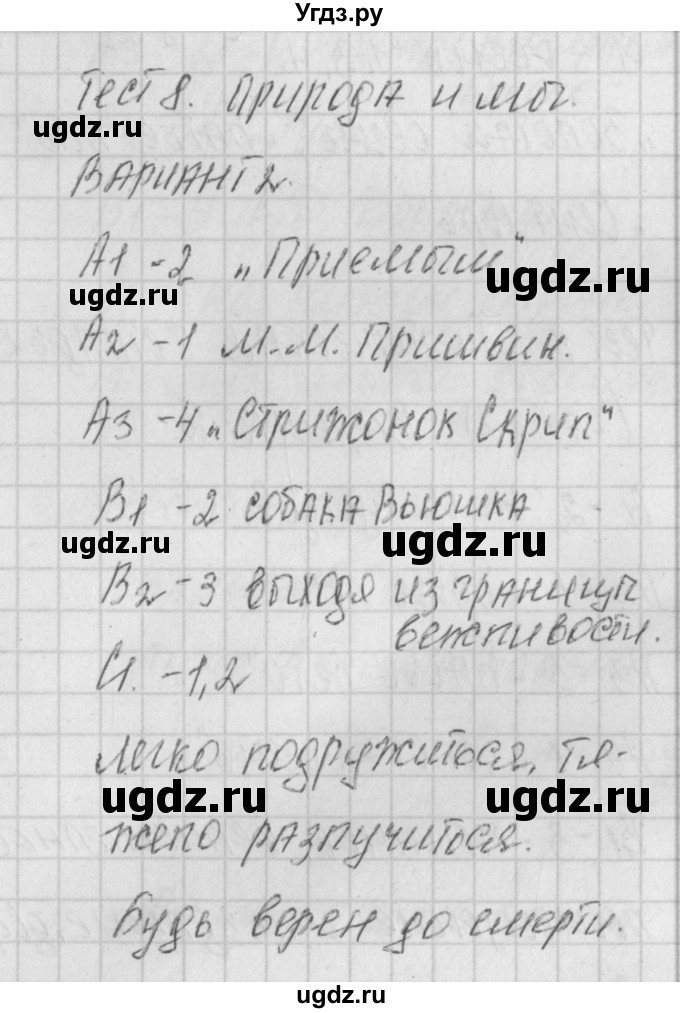 Угдз.ру
Тест 8. Природа и мы.
ugdz.ru
Вариант 2.
А1 - 2 „Приемыш"
ugdz.ru
ugdz.ru
А2 - 1 М.М. Пришвин.
А3 - 4 „Стрижонок Скрип"
В1 - 2 собака Вьюшка
ugdz.ru
ugdz.ru
В2 - 3 выходя из границы
вежливости.
С1. - 1,2
легко подружиться, тя-
ugdz.ru
ugdz.ru
жело разлучиться.
Будь верен до смерти.
ugdz.ru